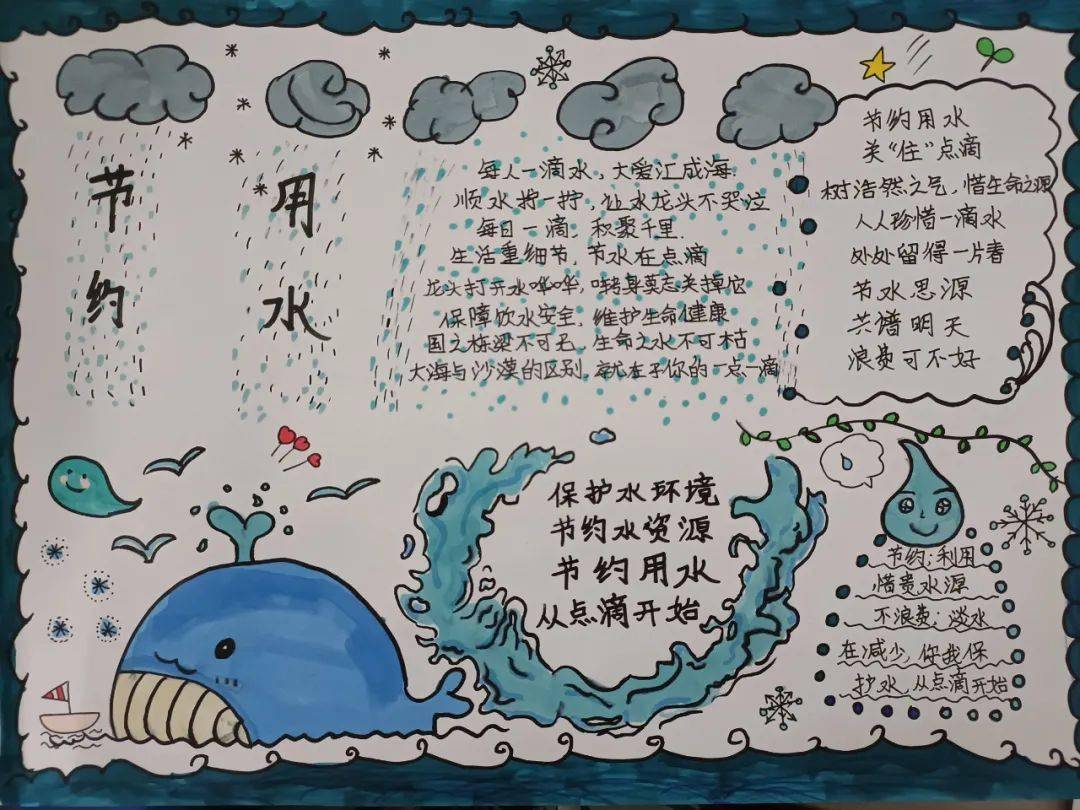 节约
用水
每人一滴水,大爱汇成海.
顺水拧一拧,让水龙头不哭泣
每日一滴,积聚千里.
生活重细节,节水在点滴
龙头打开水哗哗,转身莫忘关掉它
保障饮水安全,维护生命健康
国之栋梁不可无,生命之水不可枯
大海与沙漠的区别,就在于你的一点一滴
节约用水
关“住”点滴
树浩然之气,惜生命之源
人人珍惜一滴水
处处留得一片春
节水思源
共谱明天
浪费可不好
保护水环境
节约水资源
节约用水
从点滴开始
节约;利用
惜贵水源
不浪费;淡水
在减少,你我保
护水,从点滴开始